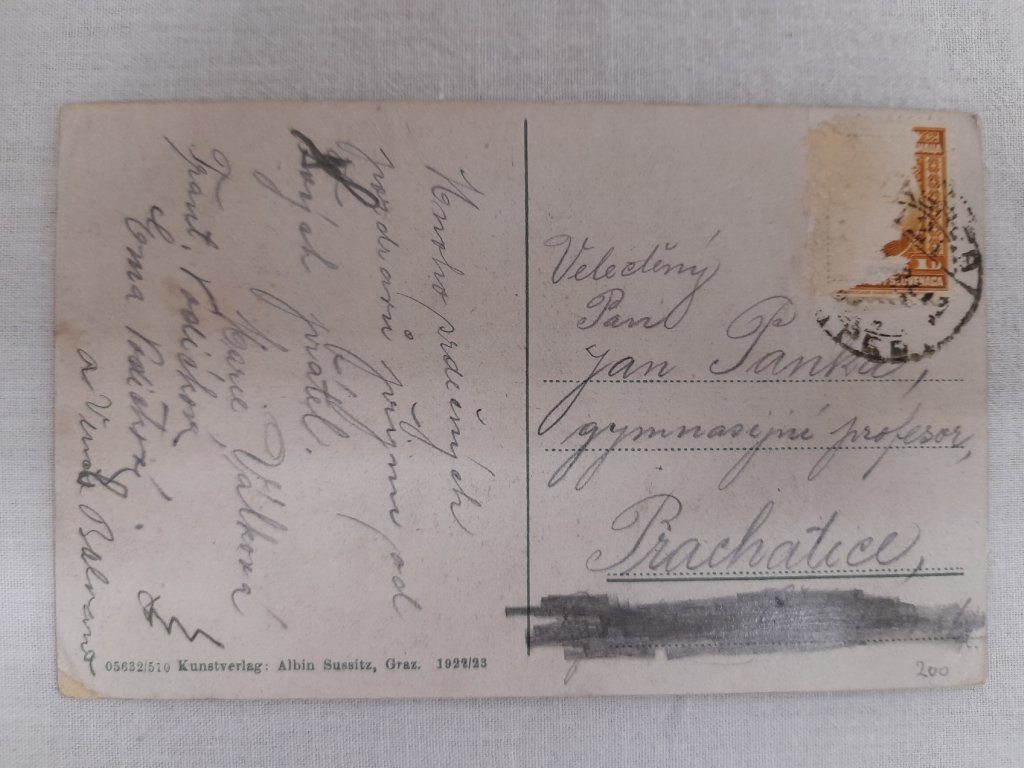 Mnoho srdečných
pozdravů přijmi od
Tvých přátel.
Marie Válková
Frant. Vodička
Ema Vodičková
a
Veleděný
Pan
Jan Panka,
gymnasijní profesor,
Prachatice,
05632/510 Kunstverlag: Albin Sussitz, Graz. 1922/23
200